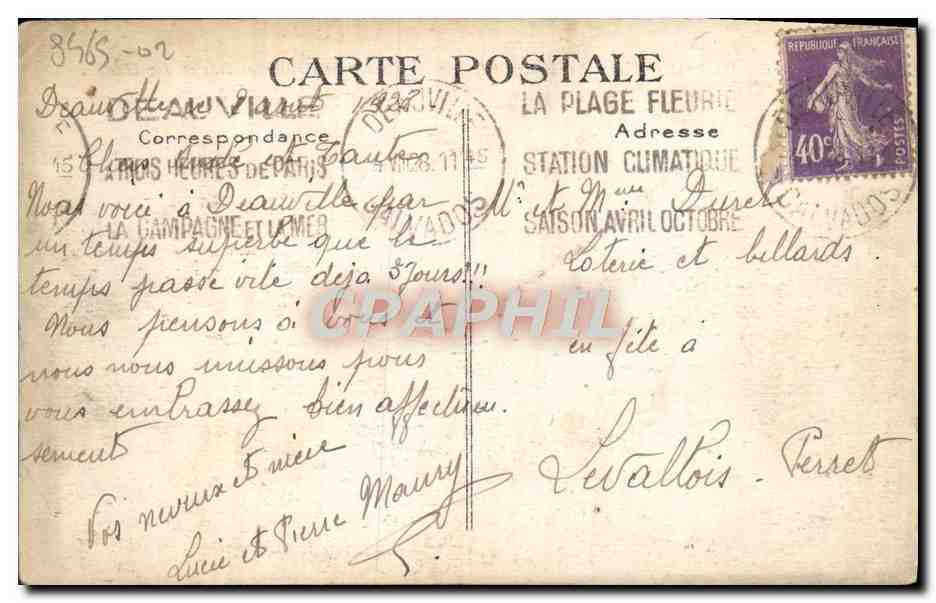 8465-02
CARTE POSTALE
REPUBLIQUE FRANÇAISE
40c
POSTES
DEAUVILLE
CALVADOS
DEAUVILLE
A TROIS HEURES DE PARIS
LA CAMPAGNE ET LA MER
LA PLAGE FLEURIE
STATION CLIMATIQUE
SAISON AVRIL OCTOBRE
Correspondance
Adresse
Deauville 1928
Chers Oncle et Tante
Nous voici à Deauville par
un temps superbe que le
temps passe vite déja 3 Jours!!!
Nous pensons à vous et
nous nous unissons pour
vous embrassez bien affectueu
sement
Vos neveux et niece
Lucie et Pierre Maury
Mr et Mme
Loterie et billards.
en fête à
Levallois-Perret
CPAPHIL